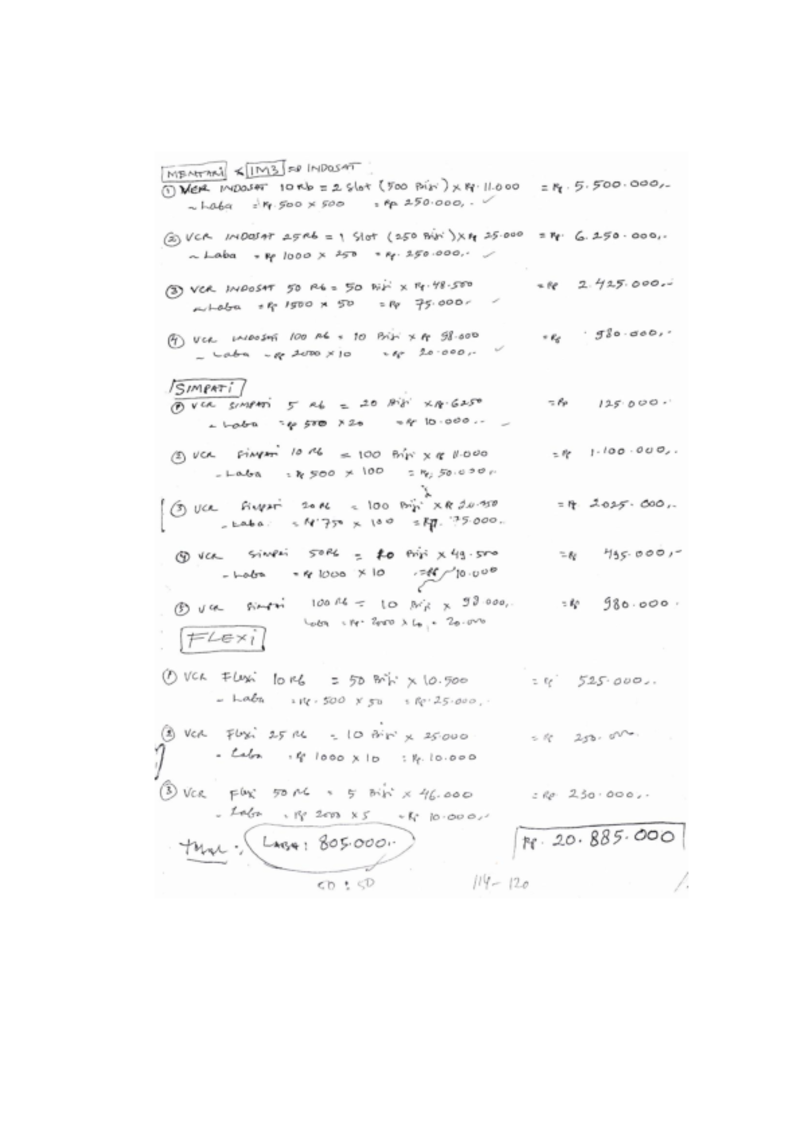 MENTARI & IM3 => INDOSAT
① VCR INDOSAT 10 Rb = 2 Slot (500 Biji) x Rp. 11.000 = Rp. 5.500.000,-
~ Laba = Rp. 500 x 500 = Rp 250.000,- ✓
② VCR INDOSAT 25 Rb = 1 Slot (250 Biji) x Rp 25.000 = Rp. 6.250.000,-
~ Laba = Rp 1000 x 250 = Rp. 250.000,- ✓
③ VCR INDOSAT 50 Rb = 50 Biji x Rp. 48.500 = Rp 2.425.000,-
~ Laba = Rp 1500 x 50 = Rp 75.000,- ✓
④ VCR INDOSAT 100 Rb = 10 Biji x Rp 98.000 = Rp 980.000,-
- Laba = Rp 2000 x 10 = Rp 20.000,- ✓
SIMPATI
① VCR SIMPATI 5 Rb = 20 Biji x Rp. 6250 = Rp 125.000.
~ Laba = Rp 500 x 20 = Rp 10.000.- ✓
② VCR Simpati 10 Rb = 100 Biji x Rp 11.000 = Rp 1.100.000,-
- Laba = Rp 500 x 100 = Rp. 50.000,-
③ VCR Simpati 20 Rb = 100 Biji x Rp = Rp 2025.000,-
- Laba = Rp. 750 x 100 = Rp. 75.000,-
④ VCR Simpati 50 Rb = 10 Biji x 49.500 = Rp 495.000,-
- Laba = Rp 1000 x 10 = Rp 10.000
⑤ VCR Simpati 100 Rb = 10 Biji x 98.000,- = Rp 980.000.
Laba = Rp. 2000 x 10 = 20.000
FLEXI
① VCR Flexi 10 Rb = 50 Biji x 10.500 = Rp 525.000,-
- Laba = Rp. 500 x 50 = Rp. 25.000,-
② VCR Flexi 25 Rb = 10 Biji x 25.000 = Rp 250.000
- Laba = Rp 1000 x 10 = Rp. 10.000
③ VCR Flexi 50 Rb = 5 Biji x 46.000 = Rp 230.000,-
- Laba = Rp 2000 x 5 = Rp 10.000,-
Laba : 805.000,- Rp. 20.885.000
50 : 50 114 - 120